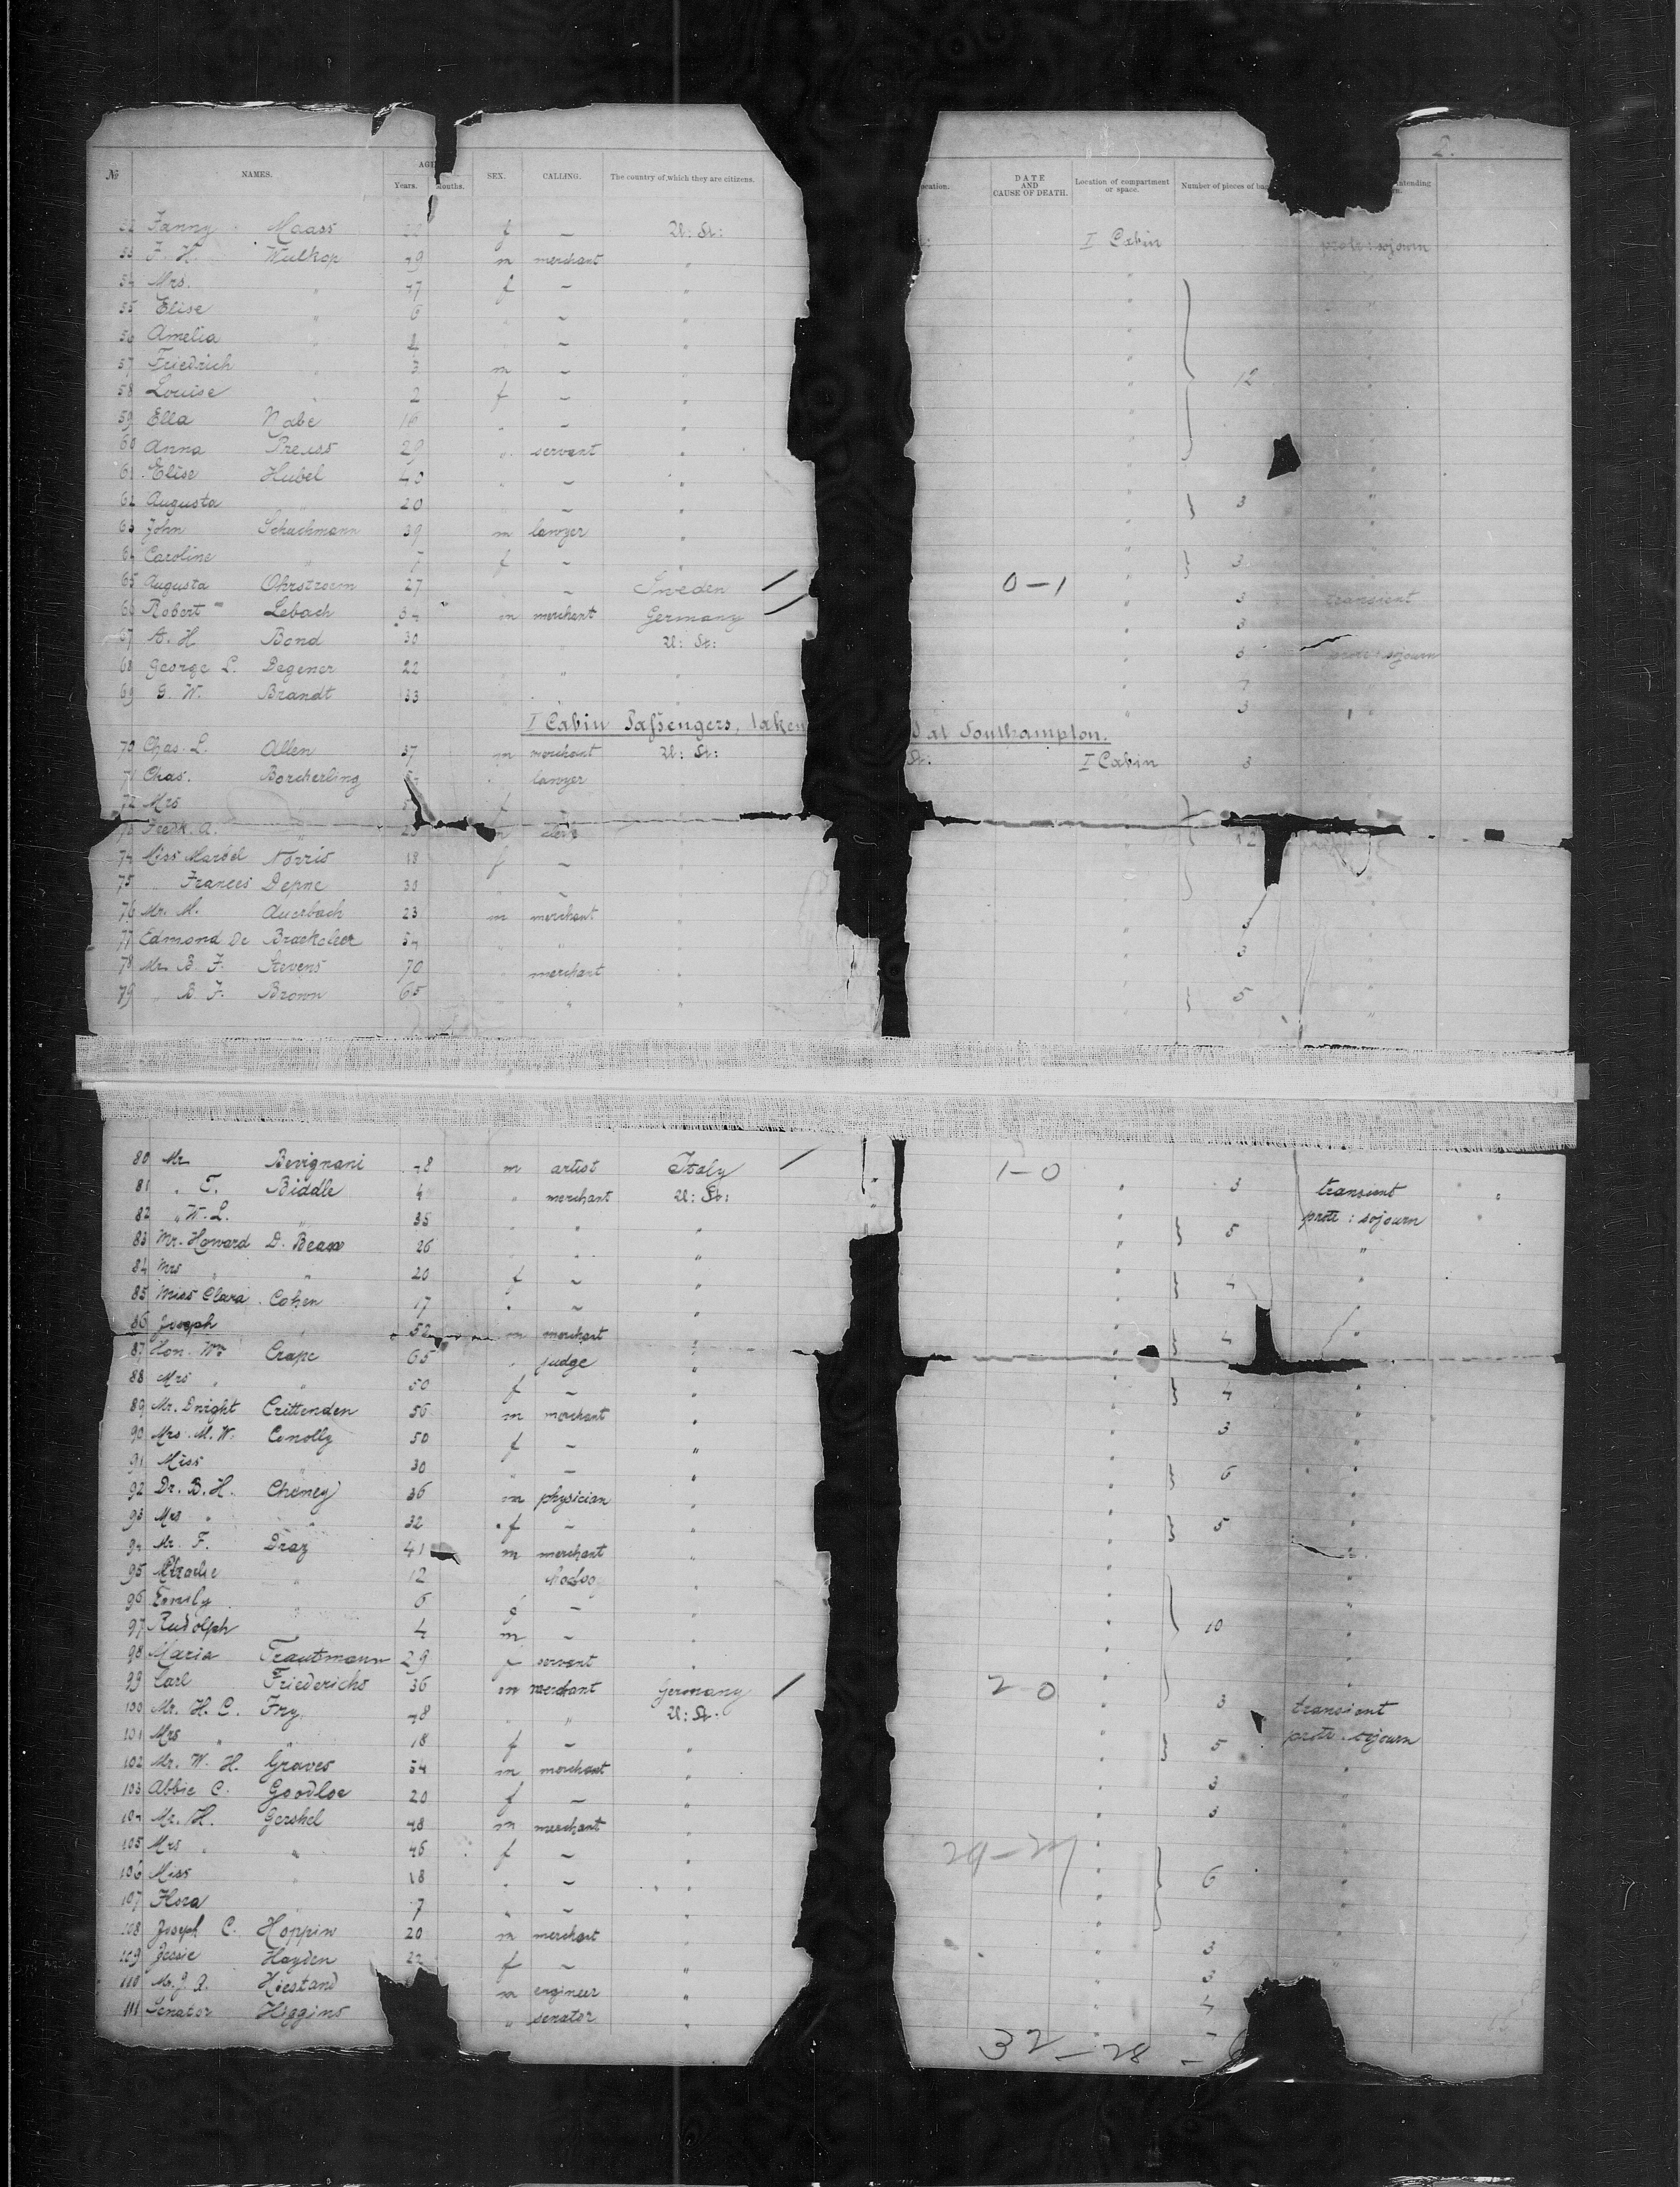 2.
№ NAMES. Years. Months. SEX. CALLING. The country of which they are citizens. DATE AND CAUSE OF DEATH. Location of compartment or space. Number of pieces of
Fanny Maass f – U: St: I Cabin sojourn
F. H. Wulkop m merchant "
54 Mrs. " f – "
55 Elise " 6 – "
56 Amelia " 4 – "
57 Friedrich " 3 m – "
58 Louise " 2 f – " 12
59 Ella Nabe 16 " – "
60 Anna Preuss 29 " servant "
61 Elise Hubel 40 " – "
62 Augusta " 20 – " 3
63 John Schuchmann 39 m lawyer "
64 Caroline " 7 f – " 3
65 Augusta Ohrstroem 27 – Sweden 0-1
66 Robert Lebach m merchant Germany 3 transient
67 A. H. Bond 30 U: St: 3
68 George L. Degener 22 " " 3 sojourn
69 G. W. Brandt 33 3
I Cabin Passengers, taken at Southampton.
70 Chas. L. Allen 37 m merchant U: St: I Cabin 3
71 Chas. Borcherling lawyer
72 Mrs f –
73 Fredk. A. " clerk 12
74 Miss Marbel Norris 18 f –
75 " Frances Depue 30 –
76 Mr. M. Auerbach 23 m merchant 3
77 Edmond De Braekeleer " " 3
78 Mr. B. F. Stevens 70 merchant
79 " B. F. Brown 65 " " 5
80 Mr Bevignani 48 m artist Italy 1-0 3 transient
81 " T. Biddle 4 " merchant U: St: protr: sojourn
82 " W. L. " 35 " " " 5 "
83 Mr. Howard D. Bean 26 " " "
84 Mrs " " 20 f – "
85 Miss Clara Cohen 17 " – "
86 Joseph " 52 m merchant " 4 "
87 Hon. Wm Crape 65 " judge "
88 Mrs " " 50 f – " 4 "
89 Mr. Dwight Crittenden 56 m merchant " 3
90 Mrs. M. W. Conolly 50 f – "
91 Miss " 30 " – " 6 "
92 Dr. B. H. Cheney 36 m physician "
93 Mrs " " 32 f – " 5 "
94 Mr. F. Draz 41 m merchant "
95 " 12 "
96 Emily " 6 – "
97 Rudolph 4 m – " 10
98 Maria Trautmann 29 f servant "
99 Carl Friederichs 36 m merchant Germany 2 0 3 transient
100 Mr. H. C. Fry 48 " " U: St. protr. sojourn
101 Mrs " " 18 f – " 5
102 Mr. W. H. Graves 54 m merchant " 3
103 Abbie C. Goodloe 20 f – " 3
104 Mr. H. Gershel 48 m merchant "
105 Mrs " " 46 f – "
106 Miss " 18 " – " 6
107 Flora " 7 " – "
108 Joseph C. Hoppin 20 m merchant " 3
109 Jessie Hayden 22 f – " 3
110 Mr. J. A. Hiestand m engineer " 4
111 Senator Higgins " senator "
32 – 28 –